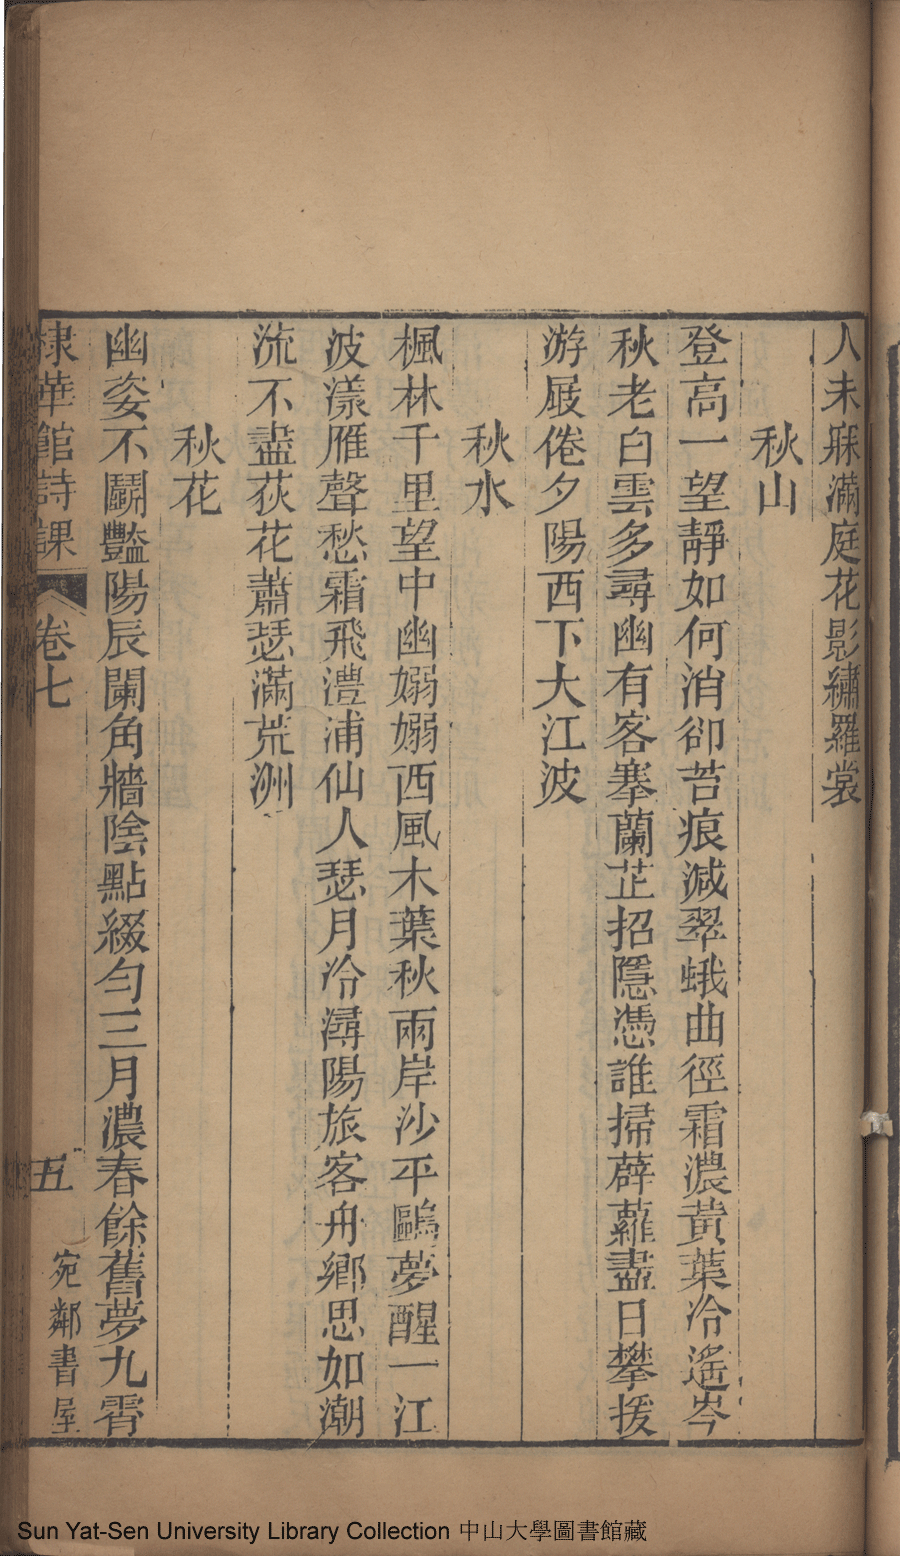 人未寐滿庭花影繡羅裳
秋山
登高一望靜如何消卻苔痕減翠蛾曲徑霜濃黃葉冷遙岑
秋老白雲多尋幽有客搴蘭芷招隱憑誰掃薜蘿盡日攀援
游屐倦夕陽西下大江波
秋水
楓林千里望中幽嫋嫋西風木葉秋兩岸沙平鷗夢醒一江
波漾雁聲愁霜飛澧浦仙人瑟月冷潯陽旅客舟鄉思如潮
流不盡荻花蕭瑟滿荒洲
秋花
幽姿不鬭豔陽辰闌角牆陰點綴勻三月濃春餘舊夢九霄
棣華館詩課 卷七 五 宛鄰書屋
Sun Yat-Sen University Library Collection 中山大學圖書館藏